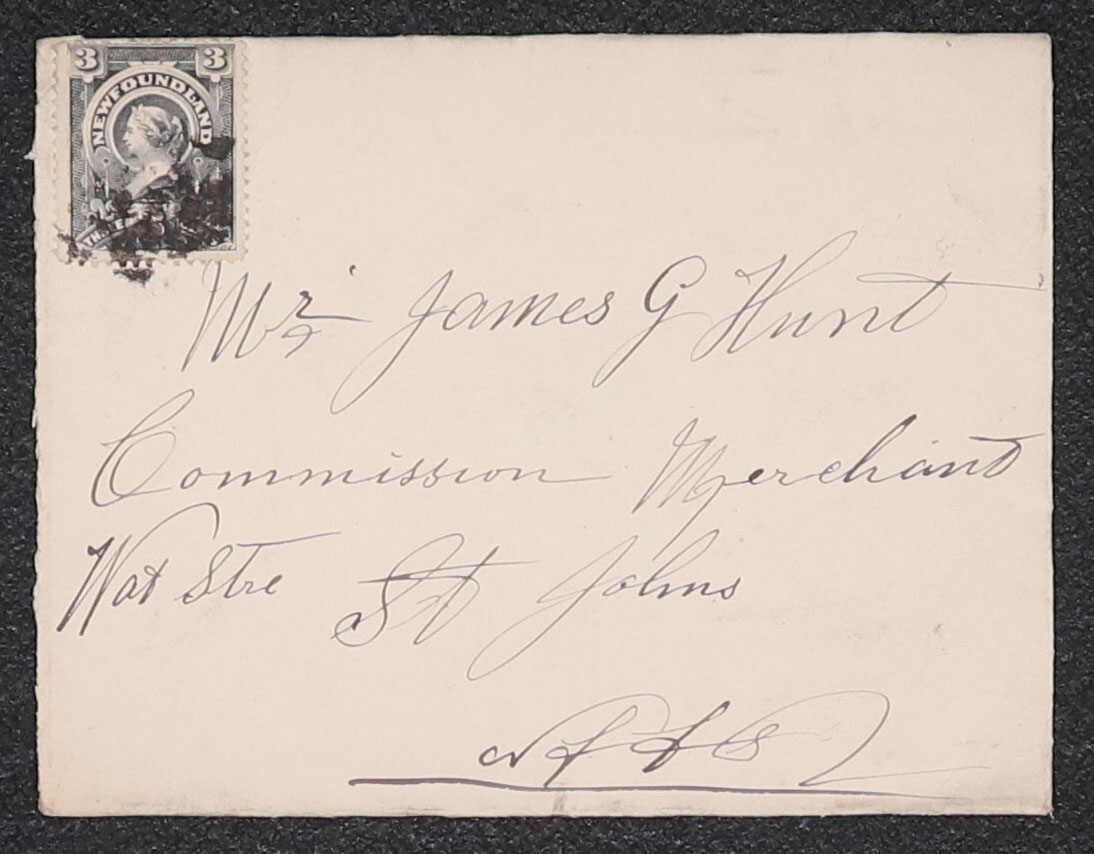 3 3
NEWFOUNDLAND
Mr James G Hunt
Commission Merchant
Wat Stre St Johns